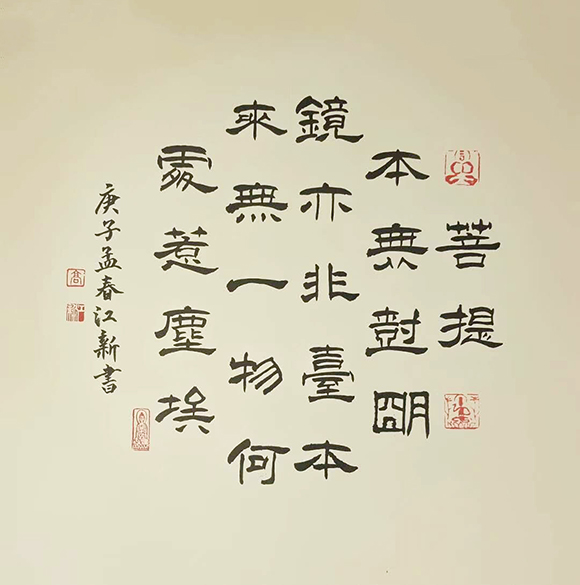 菩提
本無尌朙
鏡亦非臺本
來無一物何
處惹塵埃
庚子孟春江新書